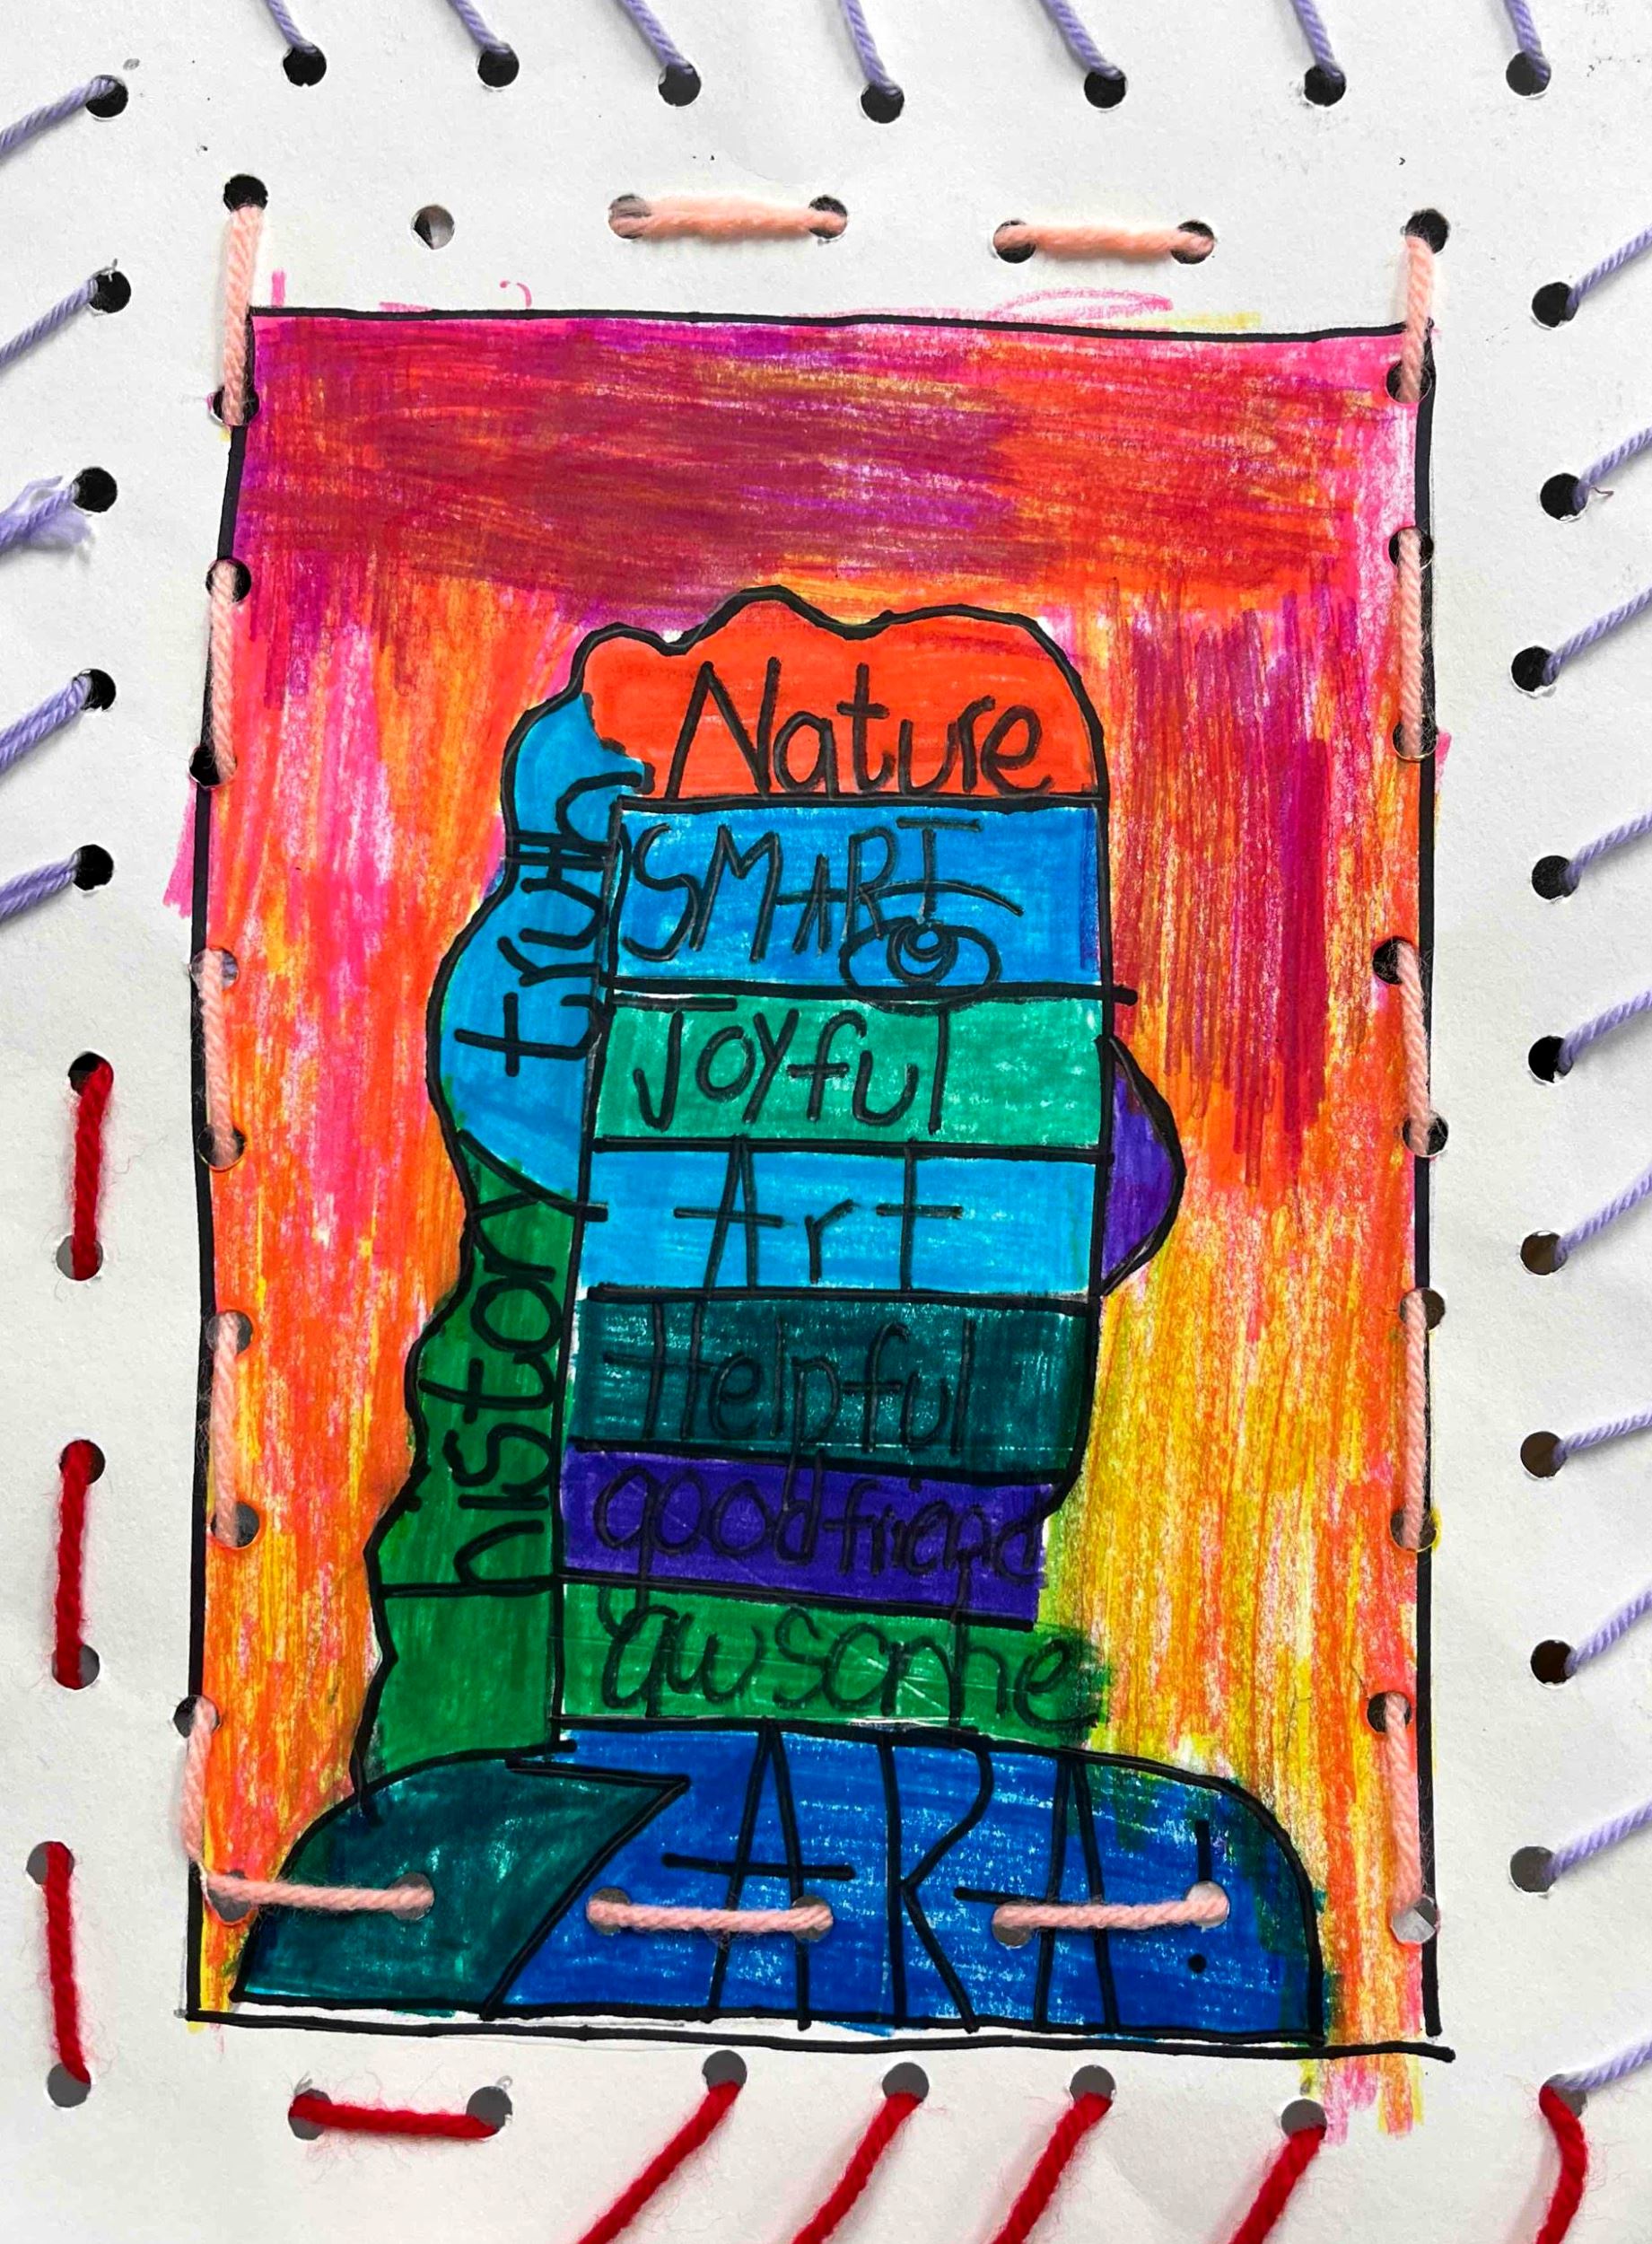 Nature
truth
SMART
Joyful
Art
history
Helpful
good friend
awsome
ZARA!